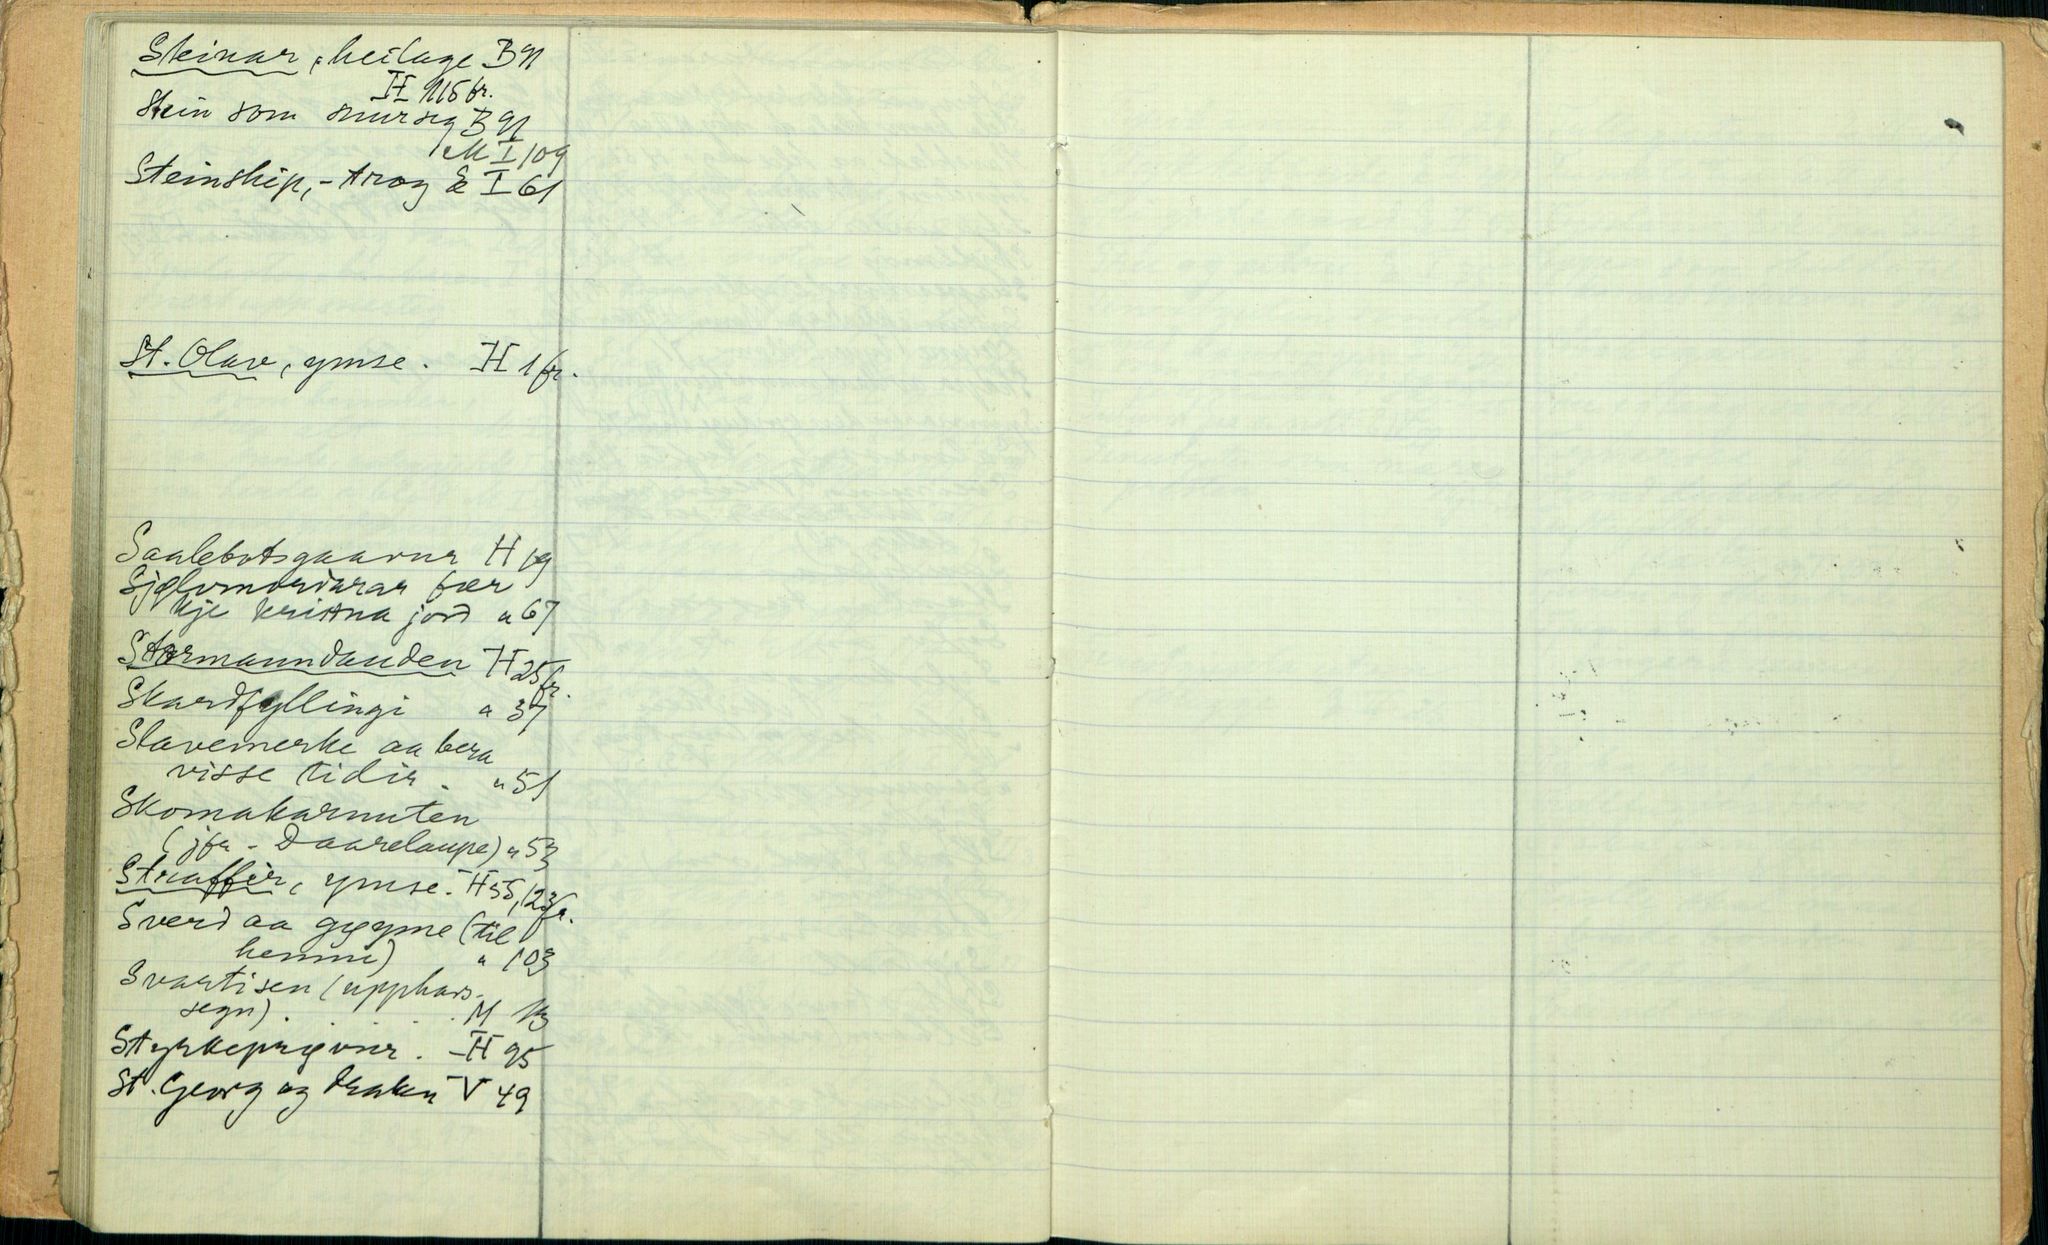 Steinar, heilage B 91
H 115 fr.
Stein som snur seg B 91
M I 109
Steinskip, -trog S I 61
St. Olav, ymse. H 1 fr.
Saalebotsgaavur H 19
Sjølvmordarar fær
kje kristna jord " 67
Stormannadauden H 25 fr.
Skardfyllingi " 37
Slavemerke aa bera
visse tider. " 51
Skomakarnuten
(jfr - Daarelaupe) " 53
Straffer, ymse. H 55, 123 fr.
Sverd aa gøyme (til
hemne) " 103
Svartisen (upphavs-
segn) . . . . M 13
Styrkeprøvur. H 95
St. Georg og draken V 49